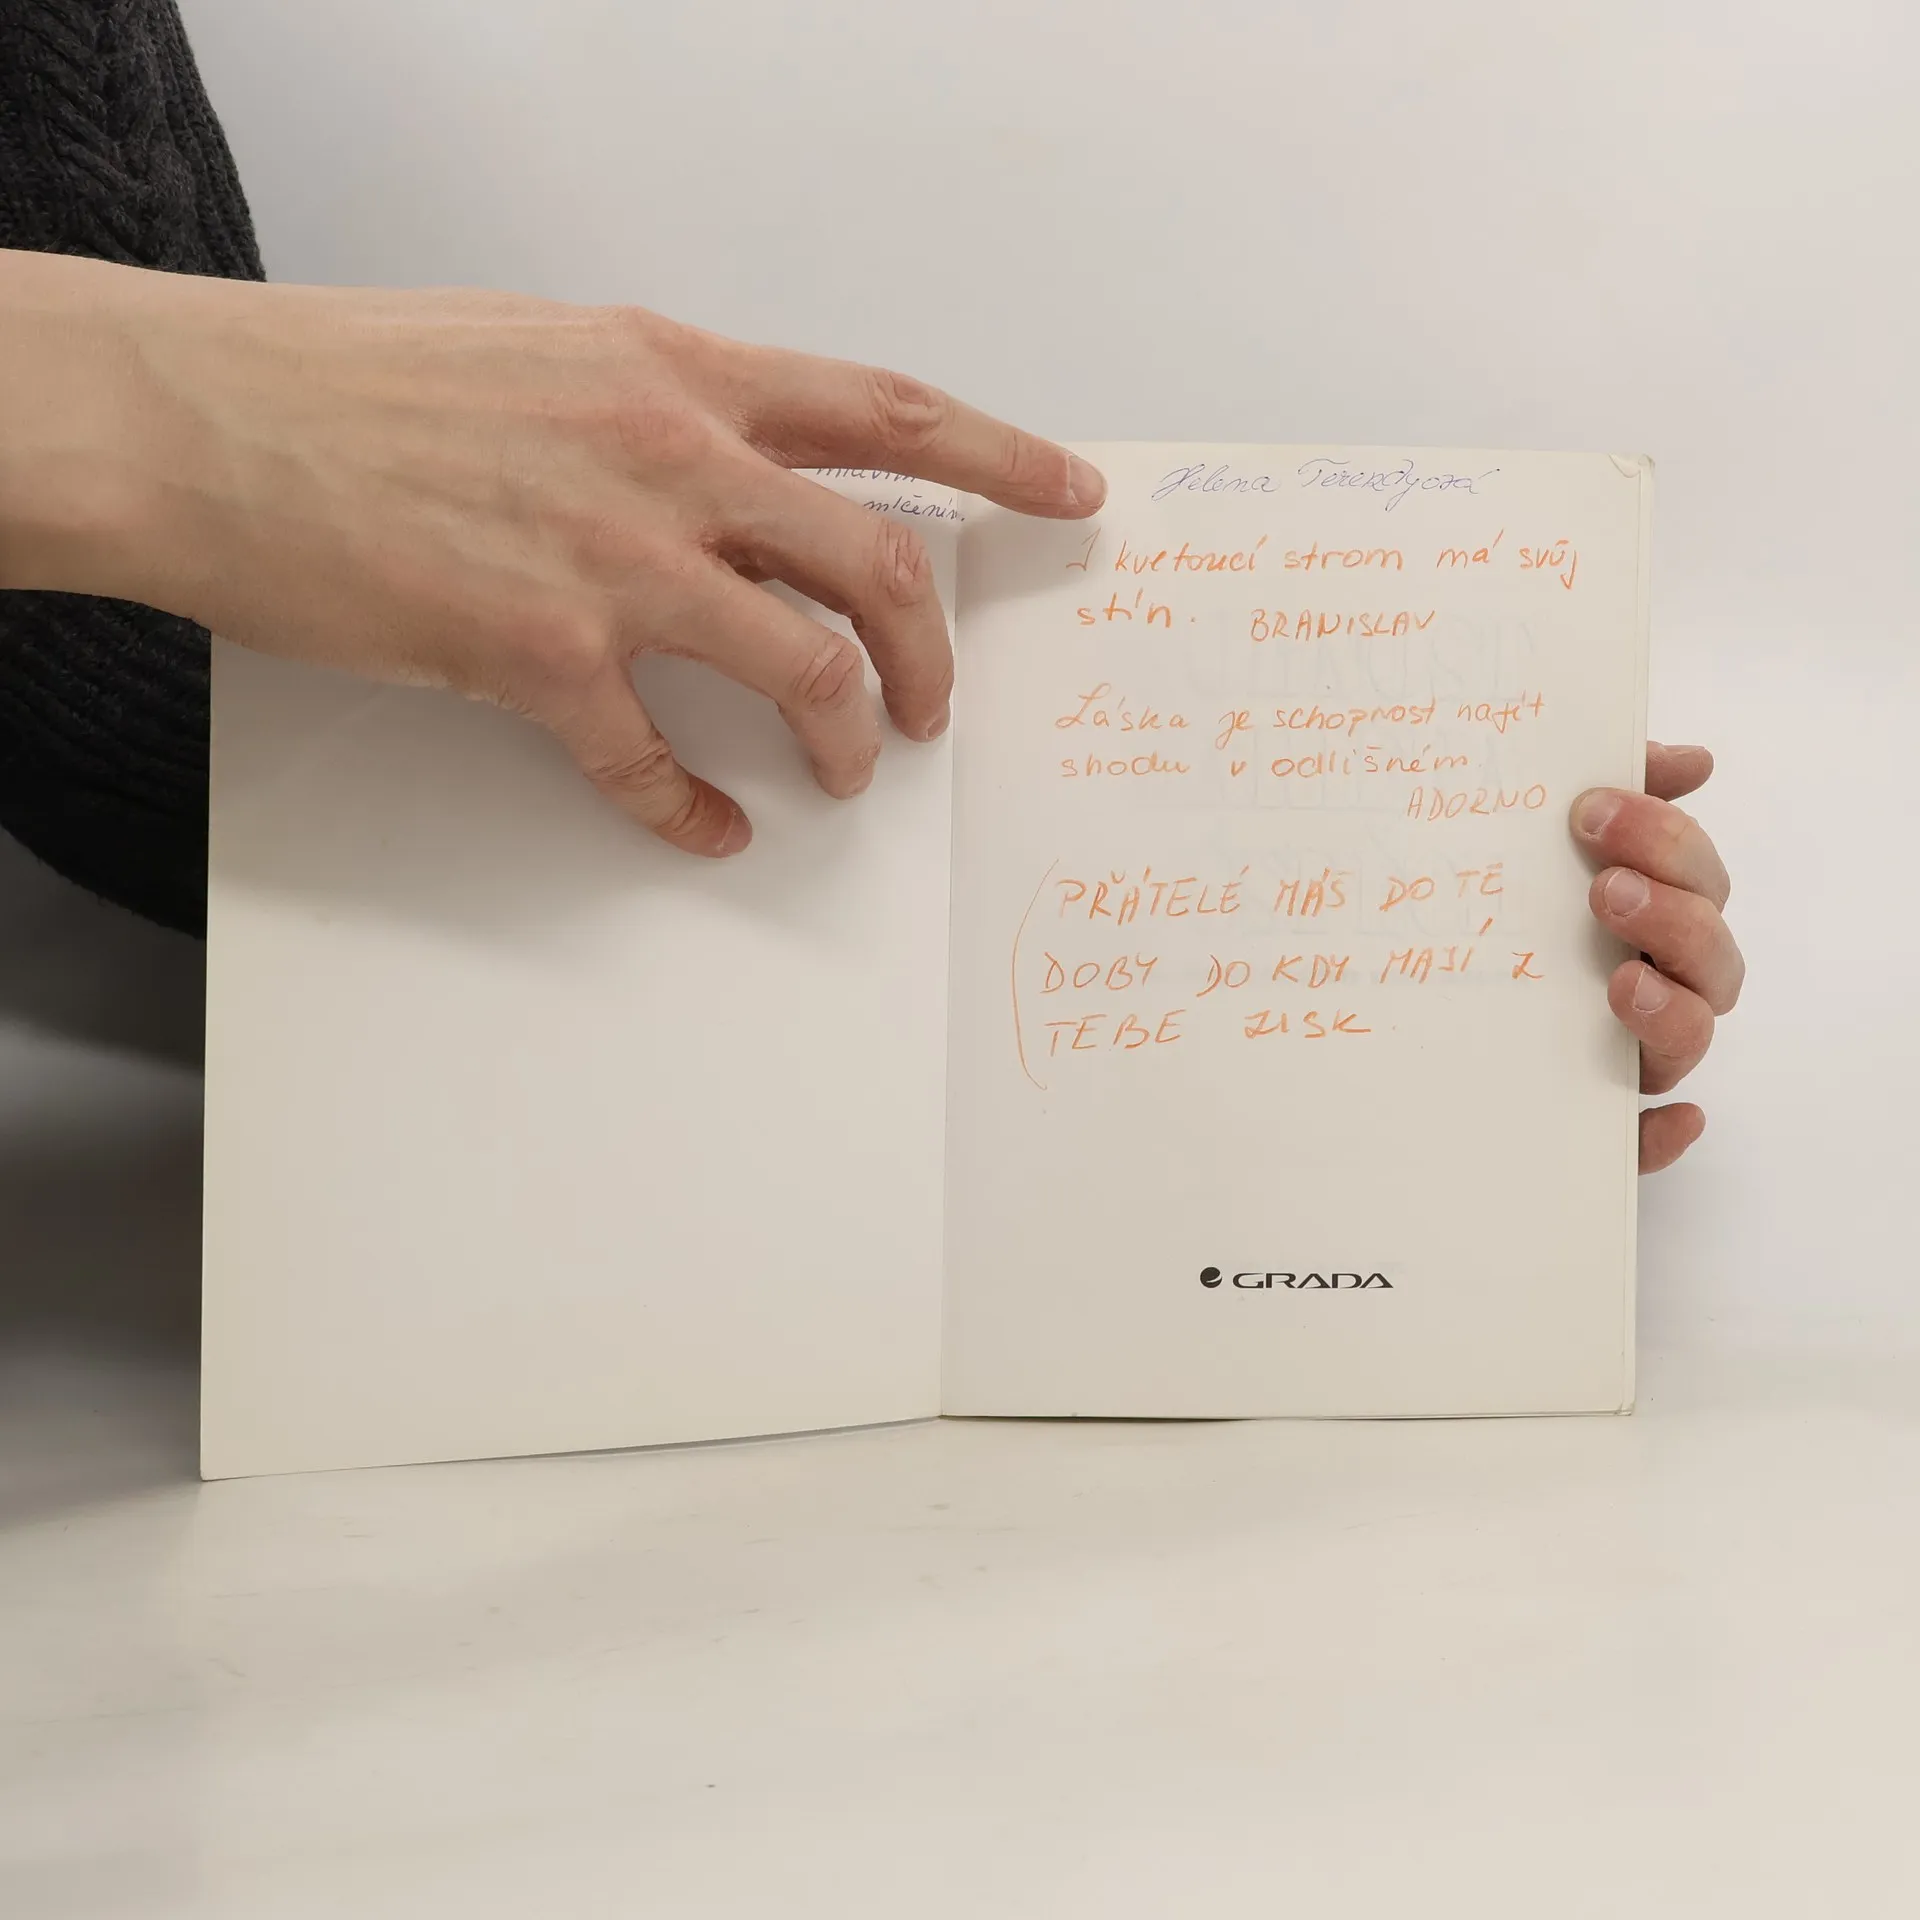 mlčením.
Helena
I kvetoucí strom má svůj
stín. BRANISLAV
Láska je schopnost najít
shodu v odlišném.
ADORNO
PŘÁTELÉ MÁŠ DO TÉ
DOBY DO KDY MAJÍ Z
TEBE ZISK.
GRADA